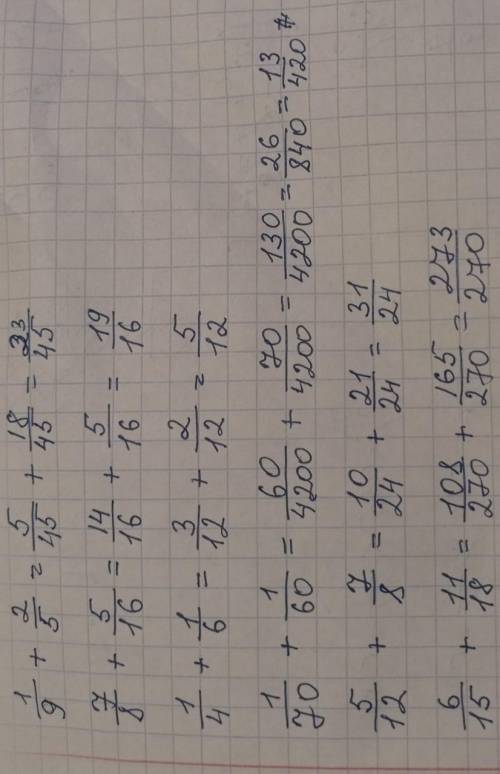 1/9 + 2/5 = 5/45 + 18/45 = 23/45
7/8 + 5/16 = 14/16 + 5/16 = 19/16
1/4 + 1/6 = 3/12 + 2/12 = 5/12
1/70 + 1/60 = 60/4200 + 70/4200 = 130/4200 = 26/840 = 13/420
5/12 + 7/8 = 10/24 + 21/24 = 31/24
6/15 + 11/18 = 108/270 + 165/270 = 273/270